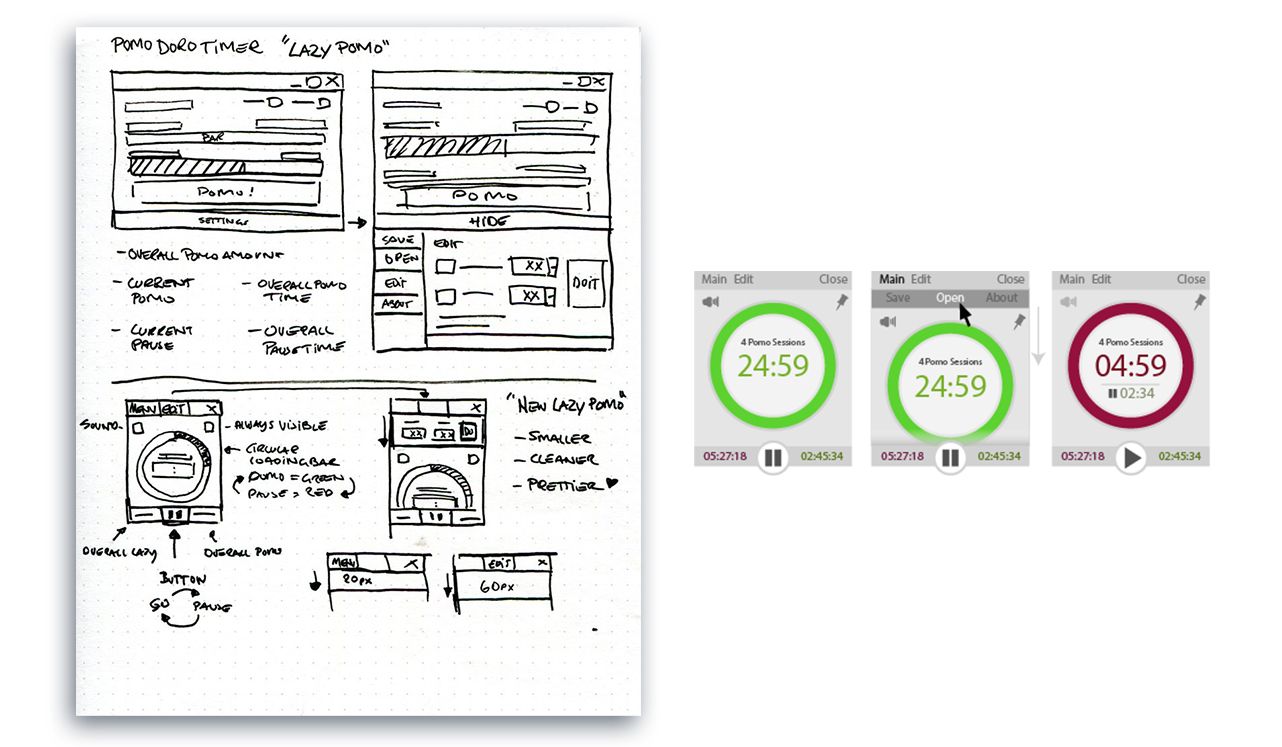 POMODORO TIMER "LAZY POMO"
BAR
POMO!
SETTINGS
POMO
HIDE
SAVE
OPEN
EDIT
ABOUT
EDIT
XX
XX
DOIT
- OVERALL POMO AMOUNT
- CURRENT
POMO
- OVERALL POMO
TIME
- CURRENT
PAUSE
- OVERALL
PAUSE TIME
MENU EDIT X
SOUND
- ALWAYS VISIBLE
CIRCULAR
LOADINGBAR
POMO = GREEN
PAUSE = RED
OVERALL LAZY
OVERALL POMO
BUTTON
GO PAUSE
X
XX XX
"NEW LAZY POMO"
- SMALLER
- CLEANER
- PRETTIER ♥
MENU X
20PX
EDIT X
60PX
Main Edit Close
4 Pomo Sessions
24:59
05:27:18 02:45:34
Main Edit Close
Save Open About
4 Pomo Sessions
24:59
05:27:18 02:45:34
Main Edit Close
4 Pomo Sessions
04:59
02:34
05:27:18 02:45:34